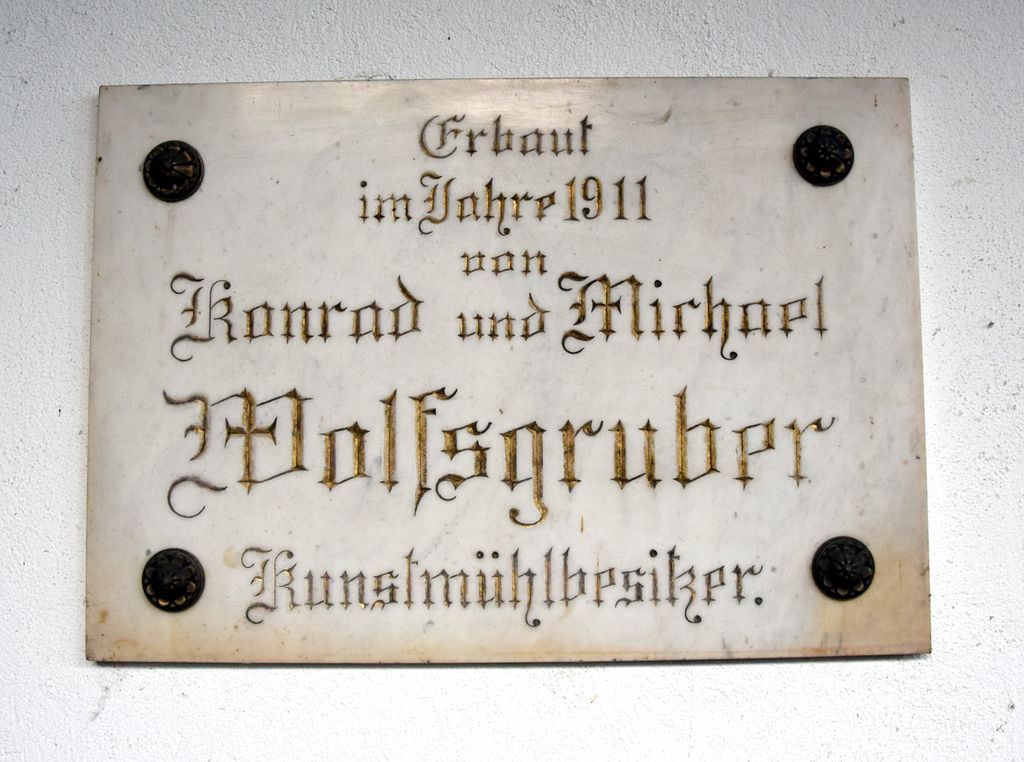 Erbaut
im Jahre 1911
von
Konrad und Michael
Wolfsgruber
Kunstmühlbesitzer.